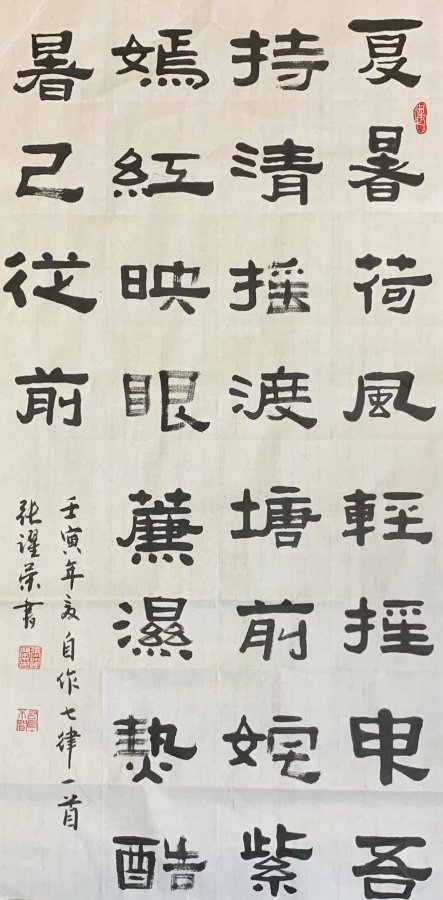 夏暑荷風輕申吾
持清摇渡塘前姹紫
嫣紅映眼濕熱酷
暑已從前
壬寅年夏自作七律一首
張躍荣書